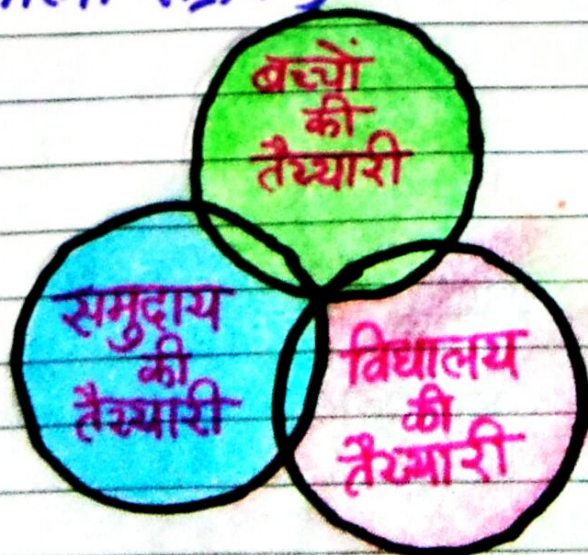 बच्चों
की
तैय्यारी
समुदाय
की
तैय्यारी
विद्यालय
की
तैय्यारी